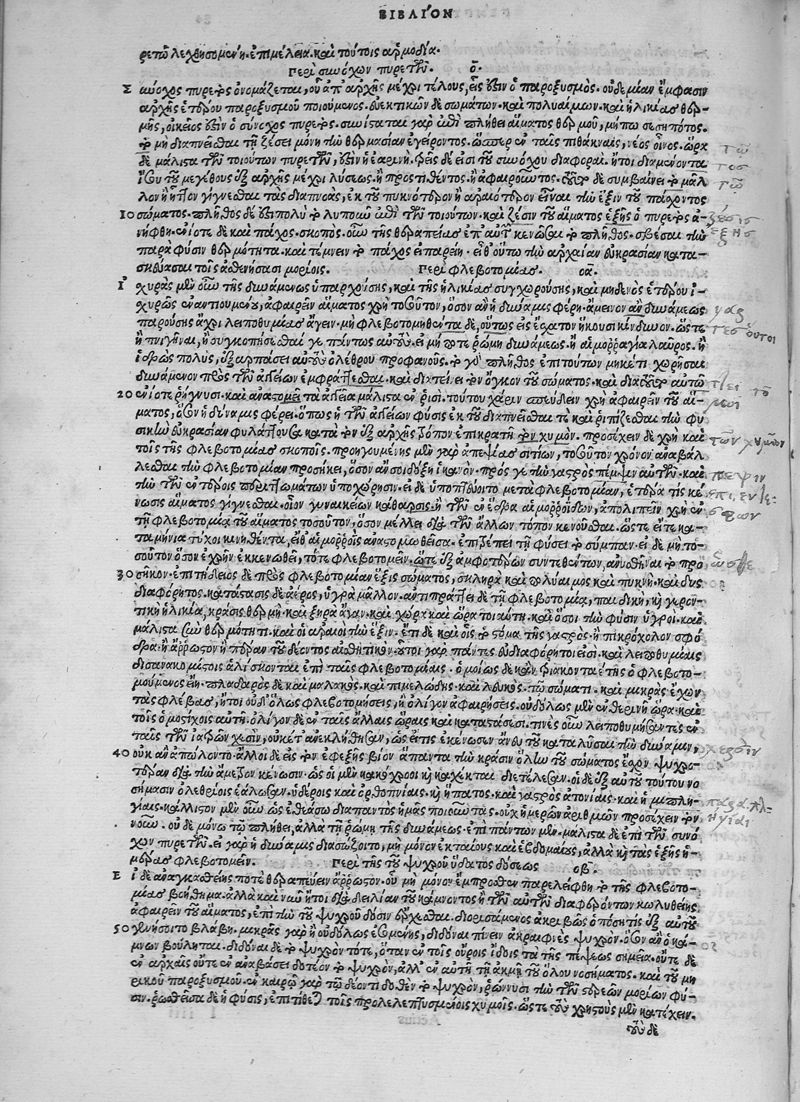 ΒΙΒΛΙΌΝ
ρετῶ λεχθησομένη ἐπιμέλεια. καὶ τούτοις ἁρμοδία.
Περὶ συνόχων πυρετῶν. ο.
Σ αύοχος πυρετὸς ὀνομάζεται, οὗ ἀπ' ἀρχῆς μέχρι τέλους, εἷς ἐστιν ὁ παροξυσμὸς. οὐδεμίαν ἔμφασιν
ἀρχῆς ἑτέρου παροξυσμοῦ ποιούμενος. εὐεκτικῶν δὲ σωμάτων. καὶ πολυαίμων. καὶ ἡλικίας θερ-
μῆς, οἰκεῖος ἐστιν ὁ σύνοχος πυρετός. συνίσταται γὰρ ἐπὶ πλήθει αἵματος θερμοῦ, μήπω σεσηπότος.
καὶ μὴ διαπνεῖσθαι τῇ ζέσει μόνῃ τὴν θερμασίαν ἐγείροντος. ὥσπερ ἐν ταῖς πιθάκναις, νέος οἶνος. ὥρα
δὲ μάλιστα τῶν τοιούτων πυρετῶν, ἐστιν ἡ ἐαρινή. τρεῖς δὲ εἰσὶ τοῦ συνόχου διαφοραὶ. ἤτοι διαμένοντα
ἴσου τοῦ μεγέθους ἐξ ἀρχῆς μέχρι λύσεως. ἢ προστιθέντος. ἢ ἀφαιροῦντος. τοῦτο δὲ συμβαίνει τὸ μᾶλ-
λον ἢ ἧττον γίγνεσθαι τὰς διαπνοὰς, ἐκ τοῦ πυκνότερον ἢ ἀραιότερον εἶναι τὴν ἕξιν τοῦ πάσχοντος
10 σώματος. πλῆθος δὲ ἐστὶ πολὺ τὸ λυποῦν ἐπὶ τῶν τοιούτων. καὶ ζέσιν τοῦ αἵματος ἑξῆς ὁ πυρετὸς ἀ-
νήφθη. ἐνίοτε δὲ καὶ πάχος. σκοπὸς. οὖν τῆς θεραπείας ἐπ' αὐτῶν κενῶσαι τὸ πλῆθος. σβέσαι τὴν
παρὰ φύσιν θερμότητα. καὶ τέμνειν τὸ πάχος εἰ παρείη. εἶθ' οὕτω τὴν ἀρχαίαν εὐκρασίαν κατα-
σκευάσαι τοῖς ἀσθενήσασι μορίοις. Περὶ φλεβοτομίας. οα.
Ἰ χυρᾶς μὲν οὖν τῆς δυνάμεως ὑπαρχούσης, καὶ τῆς ἡλικίας συγχωρούσης, καὶ μηδενὸς ἑτέρου ἰ-
χυρῶς ἐναντιουμένου, ἀφαιρεῖν αἵματος χρὴ τοσοῦτον, ὅσον ἂν ἡ δύναμις φέρῃ. ἄμεινον ἂν δυνάμεως
παρούσης ἄχρι λειποθυμίας ἄγειν. μὴ φλεβοτομηθέντα δὲ, οὕτως εἰς ἔσχατον ἥκουσι κίνδυνον. ὥστε
ἢ πνιγῆναι, ἢ συγκοπήσεσθαί γε πάντως αὐτούς. εἰ μὴ ποτε ῥώμη δυνάμεως. ἢ αἱμορραγία λαῦρος. ἢ
ἱδρὼς πολὺς, ἐξαρπάσει αὐτοὺς ὀλέθρου προφανοῦς. τὸ γὰρ πλῆθος ἐπὶ τούτων μηκέτι χωρῆσαι
δυνάμενον πρὸς τῶν ἀγγείων ἐμφράττεσθαι. καὶ διατείνει τὸν ὄγκον τοῦ σώματος. καὶ
20 ἐνίοτε ῥήγνυσι. καὶ ἀναστομεῖ τὰ ἀγγεῖα μάλιστα ἐν ῥισὶ. τούτου χάριν σπεύδειν χρὴ ἀφαιρεῖν τοῦ αἵ-
ματος, ὅσον ἡ δύναμις φέρει. ὅπως ἡ τῶν ἀγγείων φύσις ἐκ τοῦ διαπνεῖσθαί τε καὶ ῥιπίζεσθαι τὴν φυ-
σικὴν εὐκρασίαν φυλάττουσα κατὰ τὸν ἐξ ἀρχῆς τρόπον ἐπικρατῇ τὸν χυμόν. προσέχειν δὲ χρὴ καὶ
τοῖς τῆς φλεβοτομίας σκοποῖς. προηγουμένης μὲν γὰρ ἀπεψίας σιτίων, τοσοῦτον χρόνον ἀναβάλ-
λεσθαι τὴν φλεβοτομίαν προσήκει, ὅσον ἂν σοι δόξῃ ἱκανὸν. πρός γε τὴν γαστρὸς πέμψιν αὐτῶν. καὶ
τὴν τῶν ἐντέροις περιττωμάτων ὑποχώρησιν. εἰ δὲ ὑποπτεύοιτο μετὰ φλεβοτομίαν, ἑτέρα τις κέ-
νωσις αἵματος γίγνεσθαι. οἷον γυναικείων κάθαρσις. ἢ τῶν ἐν ἕδρᾳ αἱμορροΐδων, ἀπολιπεῖν χρὴ ἐν
τῇ φλεβοτομίᾳ τοῦ αἵματος τοσοῦτον, ὅσον μέλλει διὰ τῶν ἄλλων τόπον κενοῦσθαι. ὥστε εἴτε κα-
ταμήνια τύχοι κινηθέντα, εἴθ' αἱμορροῒς ἀναστομωθεῖσα. ἐπιτρέπει τῇ φύσει τὸ σύμπαν. εἰ δὲ μὴ το-
σοῦτον ὅσον ἐχρῆν ἐκκενωθείη, τότε φλεβοτομεῖν. ὥστε ἐξ ἀμφοτέρων συντεθέντων, ἀνυσθῆναι τὸ προ-
30 σῆκον. ἐπιτήδειος δὲ πρὸς φλεβοτομίαν ἕξις σώματος, σκληρὰ καὶ πολύαιμος καὶ πυκνὴ καὶ δυς
διαφόρητος. κατάστασις δὲ ἀέρος, ὑγρὰ μᾶλλον. ἀντιπράττει δὲ τῇ φλεβοτομίᾳ, παιδικὴ, καὶ γεροντι-
τικὴ ἡλικία, κρᾶσις θερμὴ. καὶ ξηρὰ ἄγαν. καὶ χώρα καὶ ὥρα τοιαύτη. καὶ ὅσοι τὴν φύσιν ὑγροὶ. καὶ
μάλιστα σὺν θερμότητι. καὶ οἱ ἀραιοὶ τὴν ἕξιν. ἔτι δὲ καὶ οἷς τὸ στόμα τῆς γαστρὸς. ἢ πικρόχολον σφό-
δρα. ἢ ἄρρωστον ἢ πέραν τοῦ δέοντος αἰσθητικόν. οὗτοι γὰρ πάντες εὐδιαφόρητοι εἰσὶ. καὶ λειποθυμίαις
δυσανακομίστοις ἁλίσκονται ἐπὶ ταῖς φλεβοτομίαις. ὁμοίως δὲ κἂν φιακοντούτης ὁ φλεβοτο-
μούμενος εἴη. πλαδαρὸς δὲ καὶ μαλακὸς. καὶ πιμελώδης. καὶ λευκὸς. τῷ σώματι. καὶ μικρὰς ἔχων
τὰς φλέβας, ἤτοι οὐδ' ὅλως φλεβοτομήσεις, ἢ ὀλίγον ἀφαιρήσεις. οὐδόλως μὲν ἐν θερινῇ ὥρᾳ. καὶ
τοῖς ὁμοστίχοις αὐτῇ. ὀλίγον δὲ ἐν ταῖς ἄλλαις ὥραις καὶ καταστάσεσι. τινὲς οὖν λειποθυμήσαντες ἐν
ταῖς τῶν ἰατρῶν χερσὶν, οὐκέτ' ἀνεκλήθησαν, ὥς εἴ τις ἐκένωσεν ἄνευ τοῦ καταλῦσαι τὴν δύναμιν,
40 οὐκ ἂν ἀπώλοντο. ἄλλοι δὲ εἰς τὸν ἐφεξῆς βίον ἅπαντα τὴν κρᾶσιν ὅλην τοῦ σώματος ἔσχον ψυχρο-
τέραν διὰ τὴν ἄμετρον κένωσιν. ὡς οἱ μὲν κακόχροοι καὶ καχέκται διετέλεσαν. οἱ δὲ ἐξ αὐτοῦ τούτου νο-
σήμασιν ὀλεθρίοις ἑάλωσαν. ὑδέροις καὶ ὀρθοπνίαις. καὶ ἥπατος. καὶ γαστρὸς ἀτονίαις. καὶ
γίαις. κάλλιστον μὲν οὖν ὡς ἐθεάσω διαπαντὸς ἡμᾶς ποιοῦντας. οὐχ ἡμερῶν ἀριθμῶν προσέχειν τὸν
νοῦν. οὐδὲ μόνῳ τῷ πλήθει, ἀλλὰ τῇ ῥώμῃ τῆς δυνάμεως. ἐπὶ πάντων μὲν. μάλιστα δὲ ἐπὶ τῶν συνό-
χων πυρετῶν. εἰ γὰρ ἡ δύναμις διασώζοιτο, μὴ μόνον ἑκταίους καὶ ἑβδομαίους, ἀλλὰ καὶ τὰς ἑξῆς ἡ-
μέρας φλεβοτομεῖν. Περὶ τῆς τοῦ ψυχροῦ ὕδατος δόσεως οβ.
Ε ἰ δὲ ἀναγκασθείης ποτὲ θεραπεύειν ἄρρωστον. οὗ μὴ μόνον ἔμπροσθεν παρελείφθη τὸ τῆς φλεβοτο-
μίας βοήθημα. ἀλλὰ καὶ νῦν ἤτοι διὰ δειλίαν τοῦ κάμνοντος ἢ τῶν αὐτῶν διαφερόντων κωλυθείης
ἀφαιρεῖν τοῦ αἵματος, ἐπὶ τὴν τοῦ ψυχροῦ δόσιν ἔρχεσθαι. διορισάμενος ἀκριβῶς ὁπόση τις ἐξ αὐτοῦ
50 γενήσοιτο βλάβη. μικρᾶς γὰρ ἢ οὐδόλως ἐσομένης, διδόναι πίνειν ἀκραιφνὲς ψυχρὸν. ὅσον ἂν ὁ κά-
μνων βούληται. διδόναι δὲ τὸ ψυχρὸν τότε, ὅταν ἐν τοῖς οὔροις ἴδοις τὰ τῆς πέψεως σημεῖα. οὔτε δὲ
ἐν ἀρχαῖς οὔτε ἐν ἀναβάσει δοτέον τὸ ψυχρὸν, ἀλλ' ἐν αὐτῇ τῇ ἀκμῇ τοῦ ὅλου νοσήματος. καὶ τοῦ με-
ρικοῦ παροξυσμοῦ. ἐν καιρῷ γὰρ τῷ δέοντι δοθὲν τὸ ψυχρὸν, ῥώννυσι τὴν τῶν στερεῶν μορίων φύ-
σιν. ῥωσθεῖσα δὲ ἡ φύσις, ἐπιτίθεται τοῖς προλελεπτυσμένοις χυμοῖς. ὥστε τοὺς χρηστοὺς μὲν κατέχειν.
τοὺς δὲ